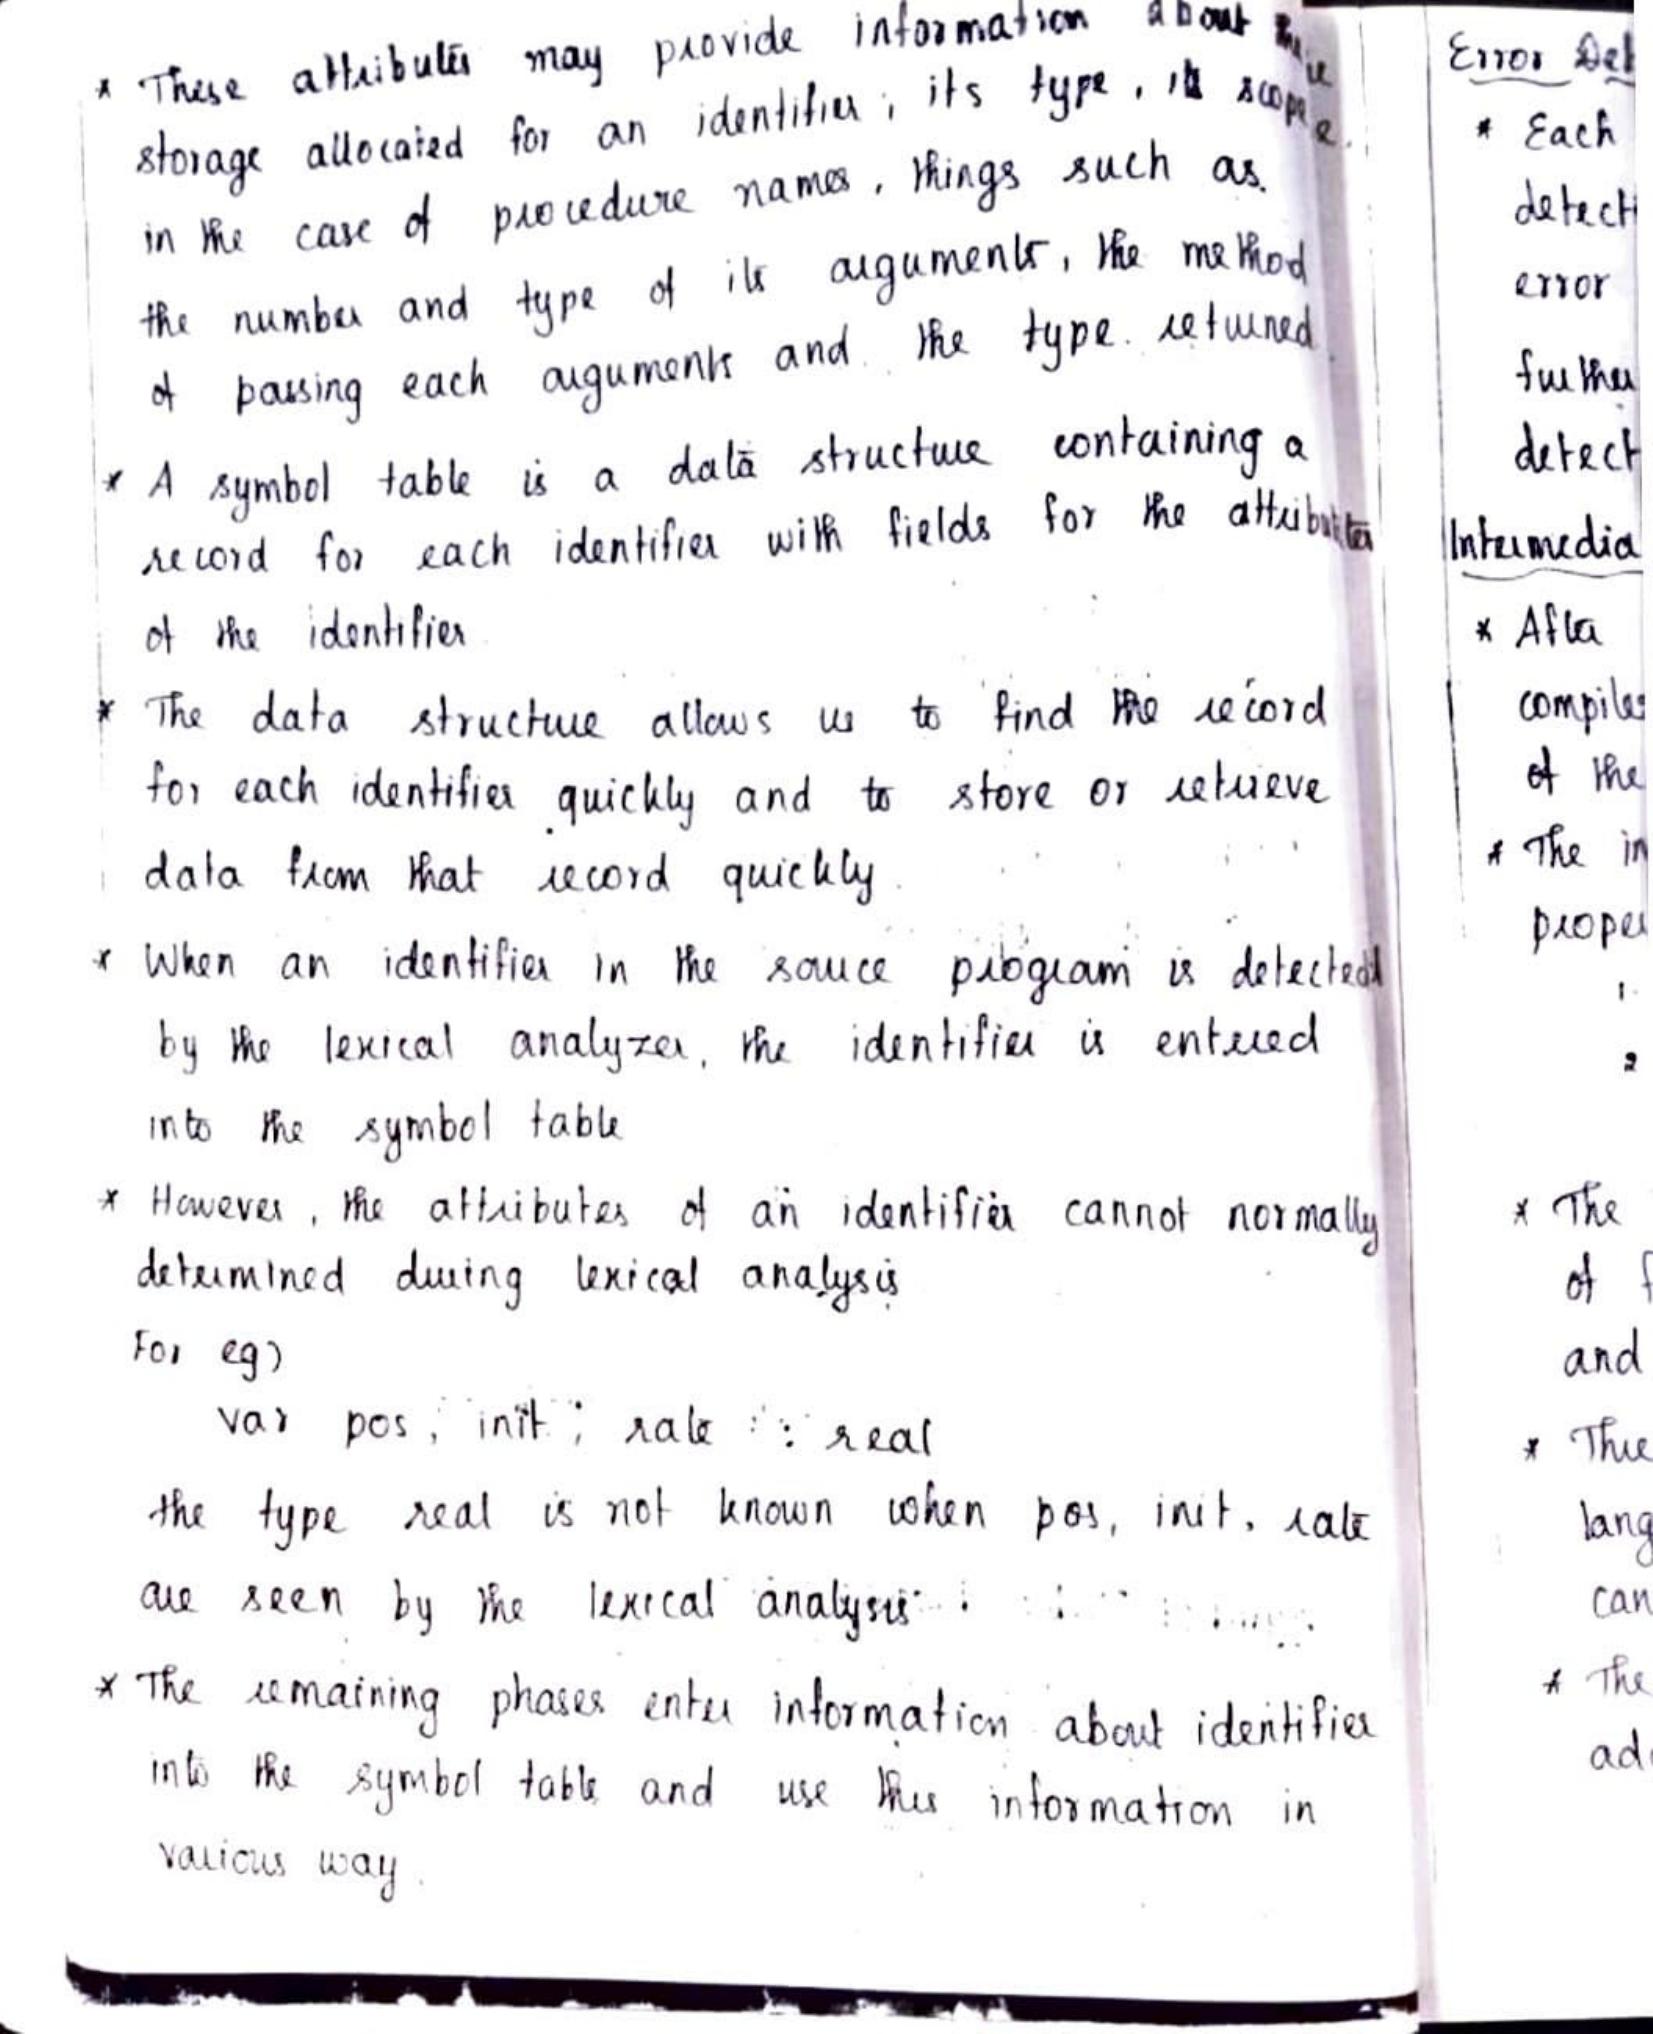 * These attributes may provide information about the
storage allocated for an identifier, its type, its scope
in the case of procedure names, things such as
the number and type of its arguments, the method
of passing each arguments and the type returned.
* A symbol table is a data structure containing a
record for each identifier with fields for the attributes
of the identifier
* The data structure allows us to find the record
for each identifier quickly and to store or retrieve
data from that record quickly.
* When an identifier in the source program is detected
by the lexical analyzer, the identifier is entered
into the symbol table
* However, the attributes of an identifier cannot normally
determined during lexical analysis
For eg)
var pos, init, rate : real
the type real is not known when pos, init, rate
are seen by the lexical analysis
* The remaining phases enter information about identifier
into the symbol table and use this information in
various way.
Error Det
* Each
detecti
error
further
detect
Intermedia
* After
compiles
of the
* The in
proper
1.
2
* The
of f
and
* Thre
lang
can
* The
ad